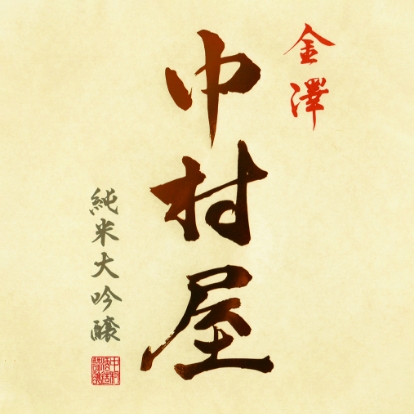 金澤
中村屋
純米大吟醸